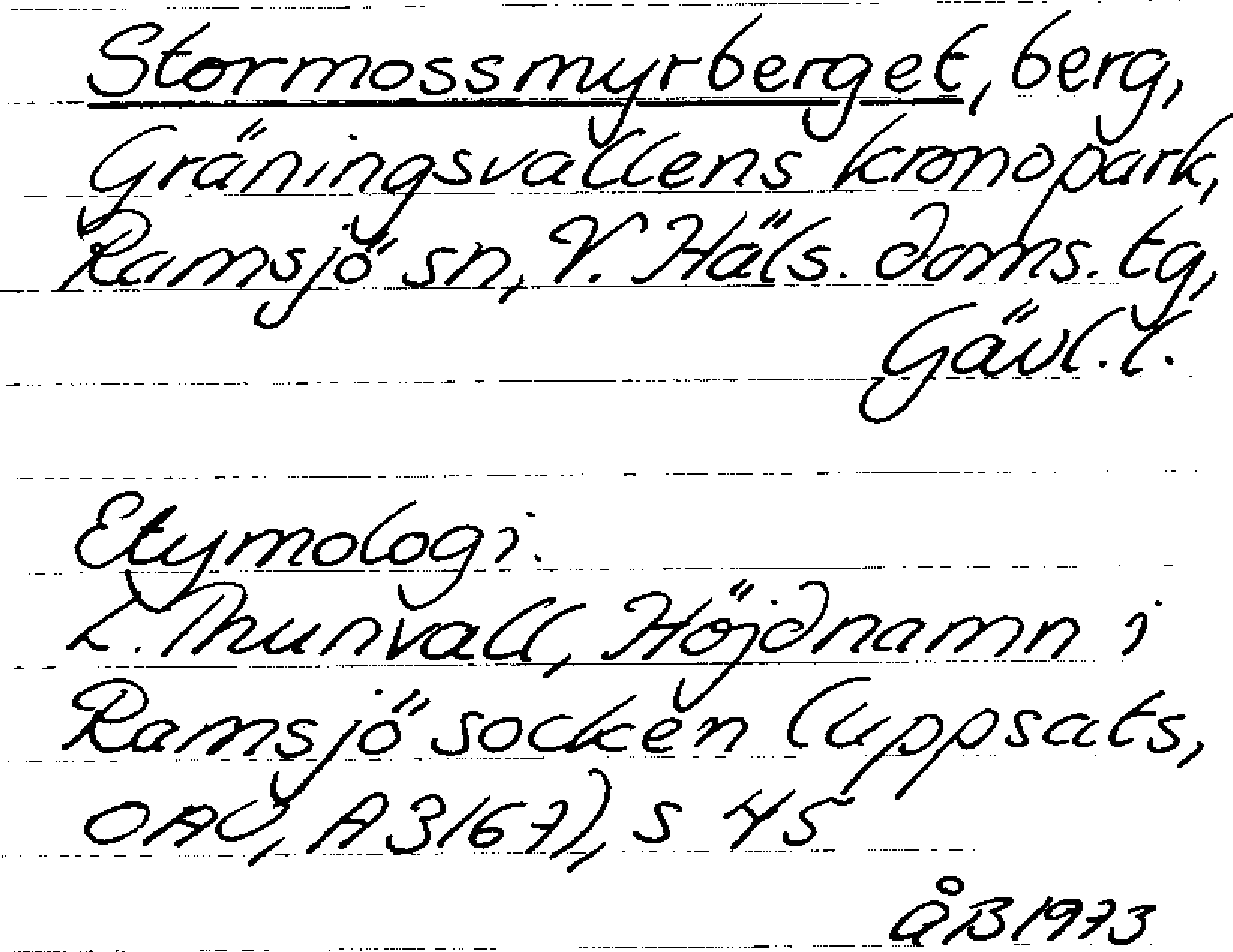 Stormossmyrberget, berg,
Gräningsvallens kronopark,
Ramsjö sn, V. Häls. doms. tg,
Gävl. l.
Etymologi.
L. Thunvall, Höjdnamn i
Ramsjö socken (uppsats,
OAU, A 3167), s 45
ÅB 1973